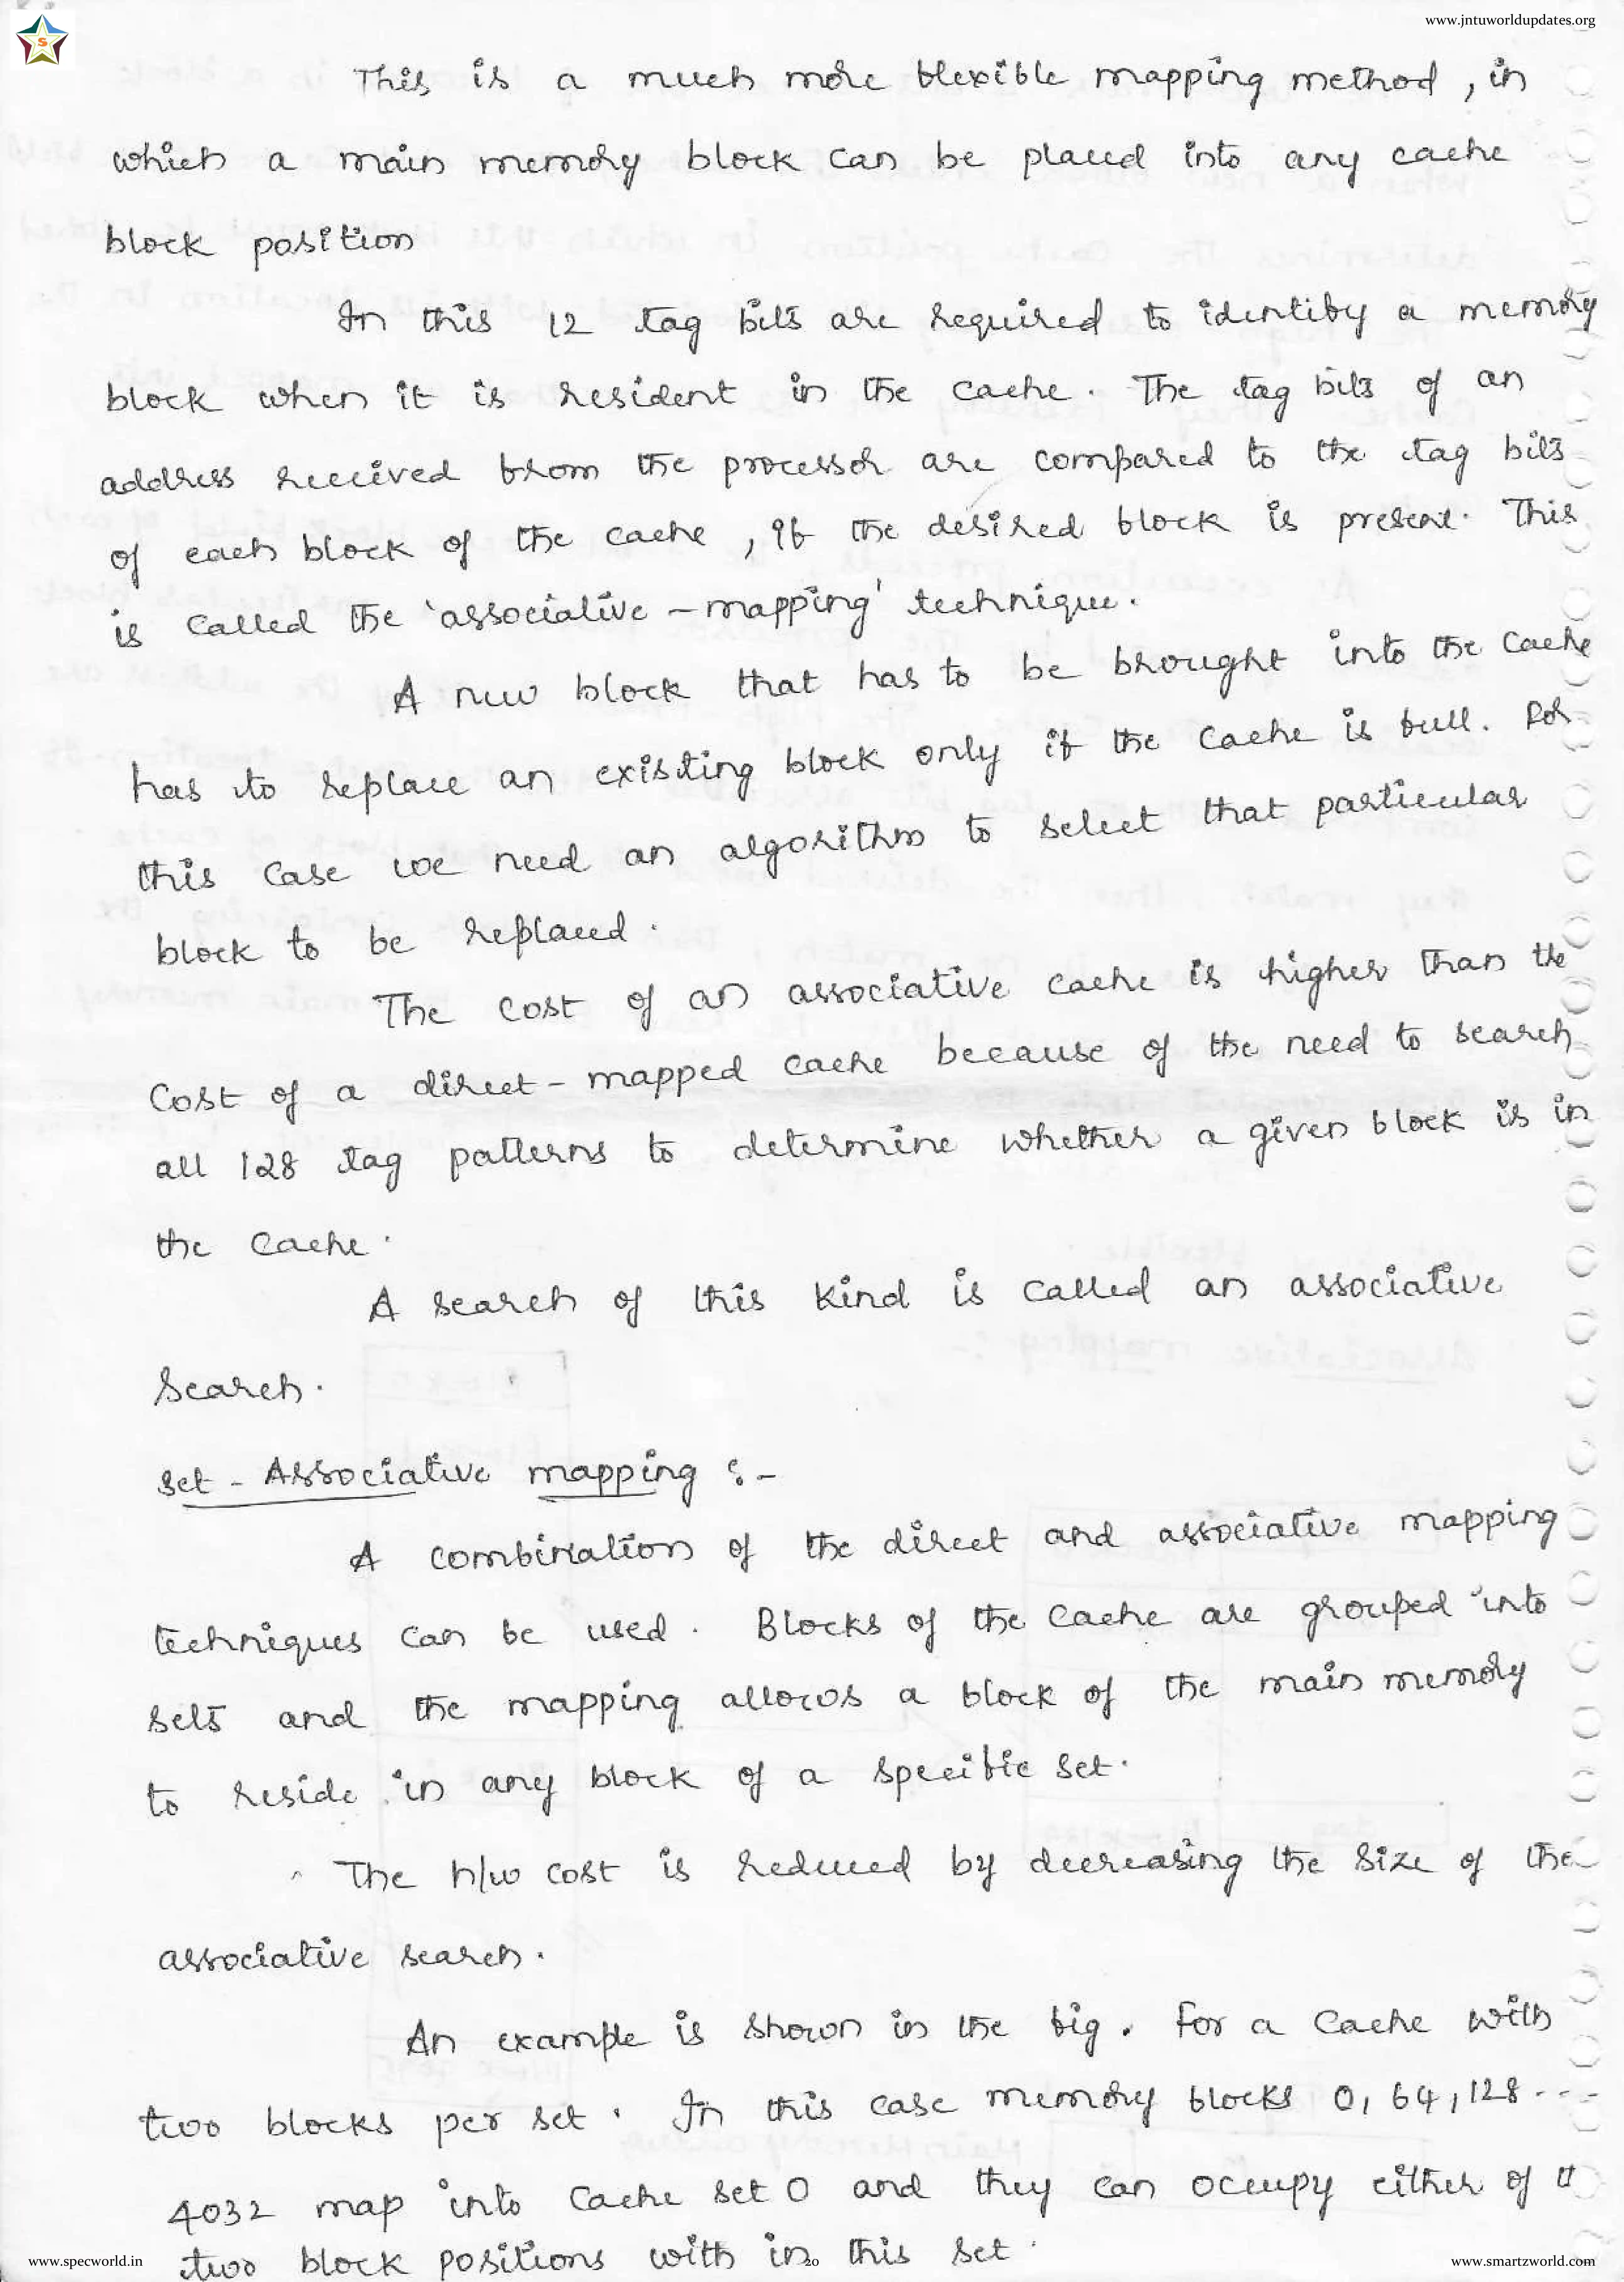 www.jntuworldupdates.org
S
This is a much more flexible mapping method, in
which a main memory block can be placed into any cache
block position
In this 12 tag bits are required to identify a memory
block when it is resident in the cache. The tag bits of an
address received from the processor are compared to the tag bits
of each block of the cache, if the desired block is present. This
is called the 'associative - mapping' technique.
A new block that has to be brought into the cache
has to replace an existing block only if the cache is full. For
this case we need an algorithm to select that particular
block to be replaced.
The cost of an associative cache is higher than the
cost of a direct - mapped cache because of the need to search
all 128 tag patterns to determine whether a given block is in
the cache.
A search of this kind is called an associative
search.
Set - Associative mapping :-
A combination of the direct and associative mapping
techniques can be used. Blocks of the cache are grouped into
sets and the mapping allows a block of the main memory
to reside in any block of a specific set.
The h/w cost is reduced by decreasing the size of the
associative search.
An example is shown in the fig. for a cache with
two blocks per set. In this case memory blocks 0, 64, 128----
4032 map into cache set 0 and they can occupy either of
two block positions with in this set.
www.specworld.in
20
www.smartzworld.com